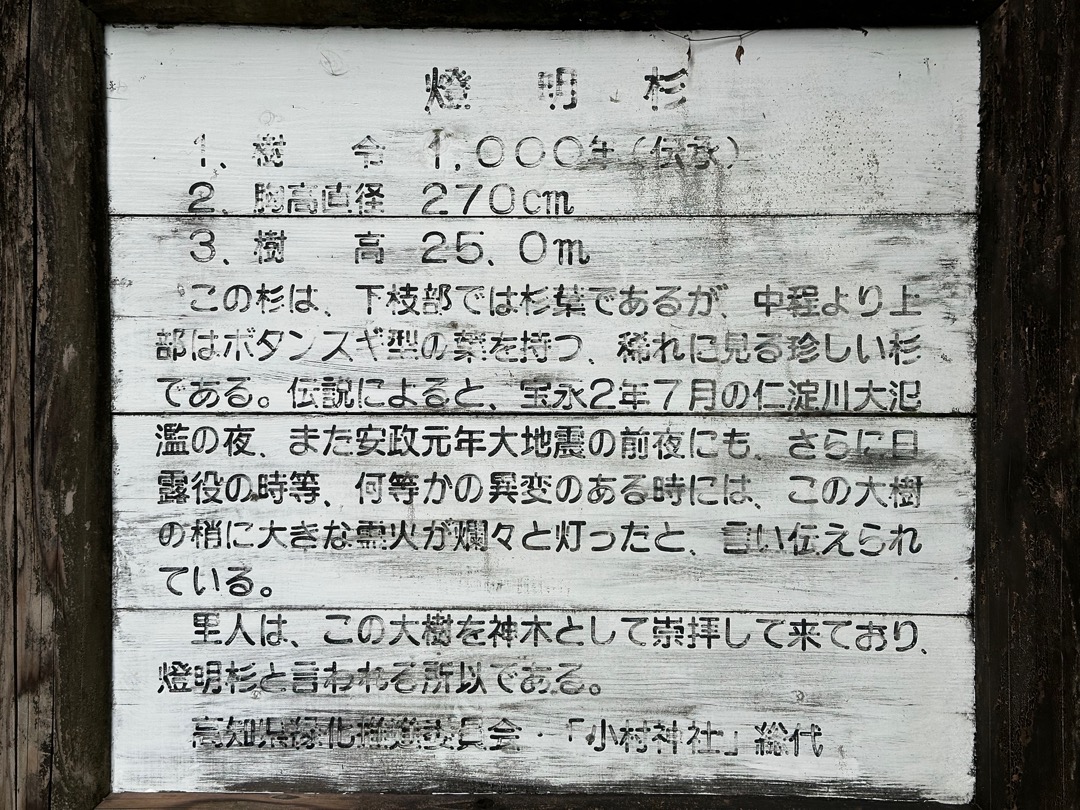 燈明杉
1、樹　令　1,000年(伝承)
2、胸高直径　270cm
3、樹　高　25.0m
この杉は、下枝部では杉葉であるが、中程より上
部はボタンスギ型の葉を持つ、稀れに見る珍しい杉
である。伝説によると、宝永2年7月の仁淀川大氾
濫の夜、また安政元年大地震の前夜にも、さらに日
露役の時等、何等かの異変のある時には、この大樹
の梢に大きな霊火が爛々と灯ったと、言い伝えられ
ている。
里人は、この大樹を神木として崇拝して来ており、
燈明杉と言われる所以である。
高知県緑化推進委員会・「小村神社」総代